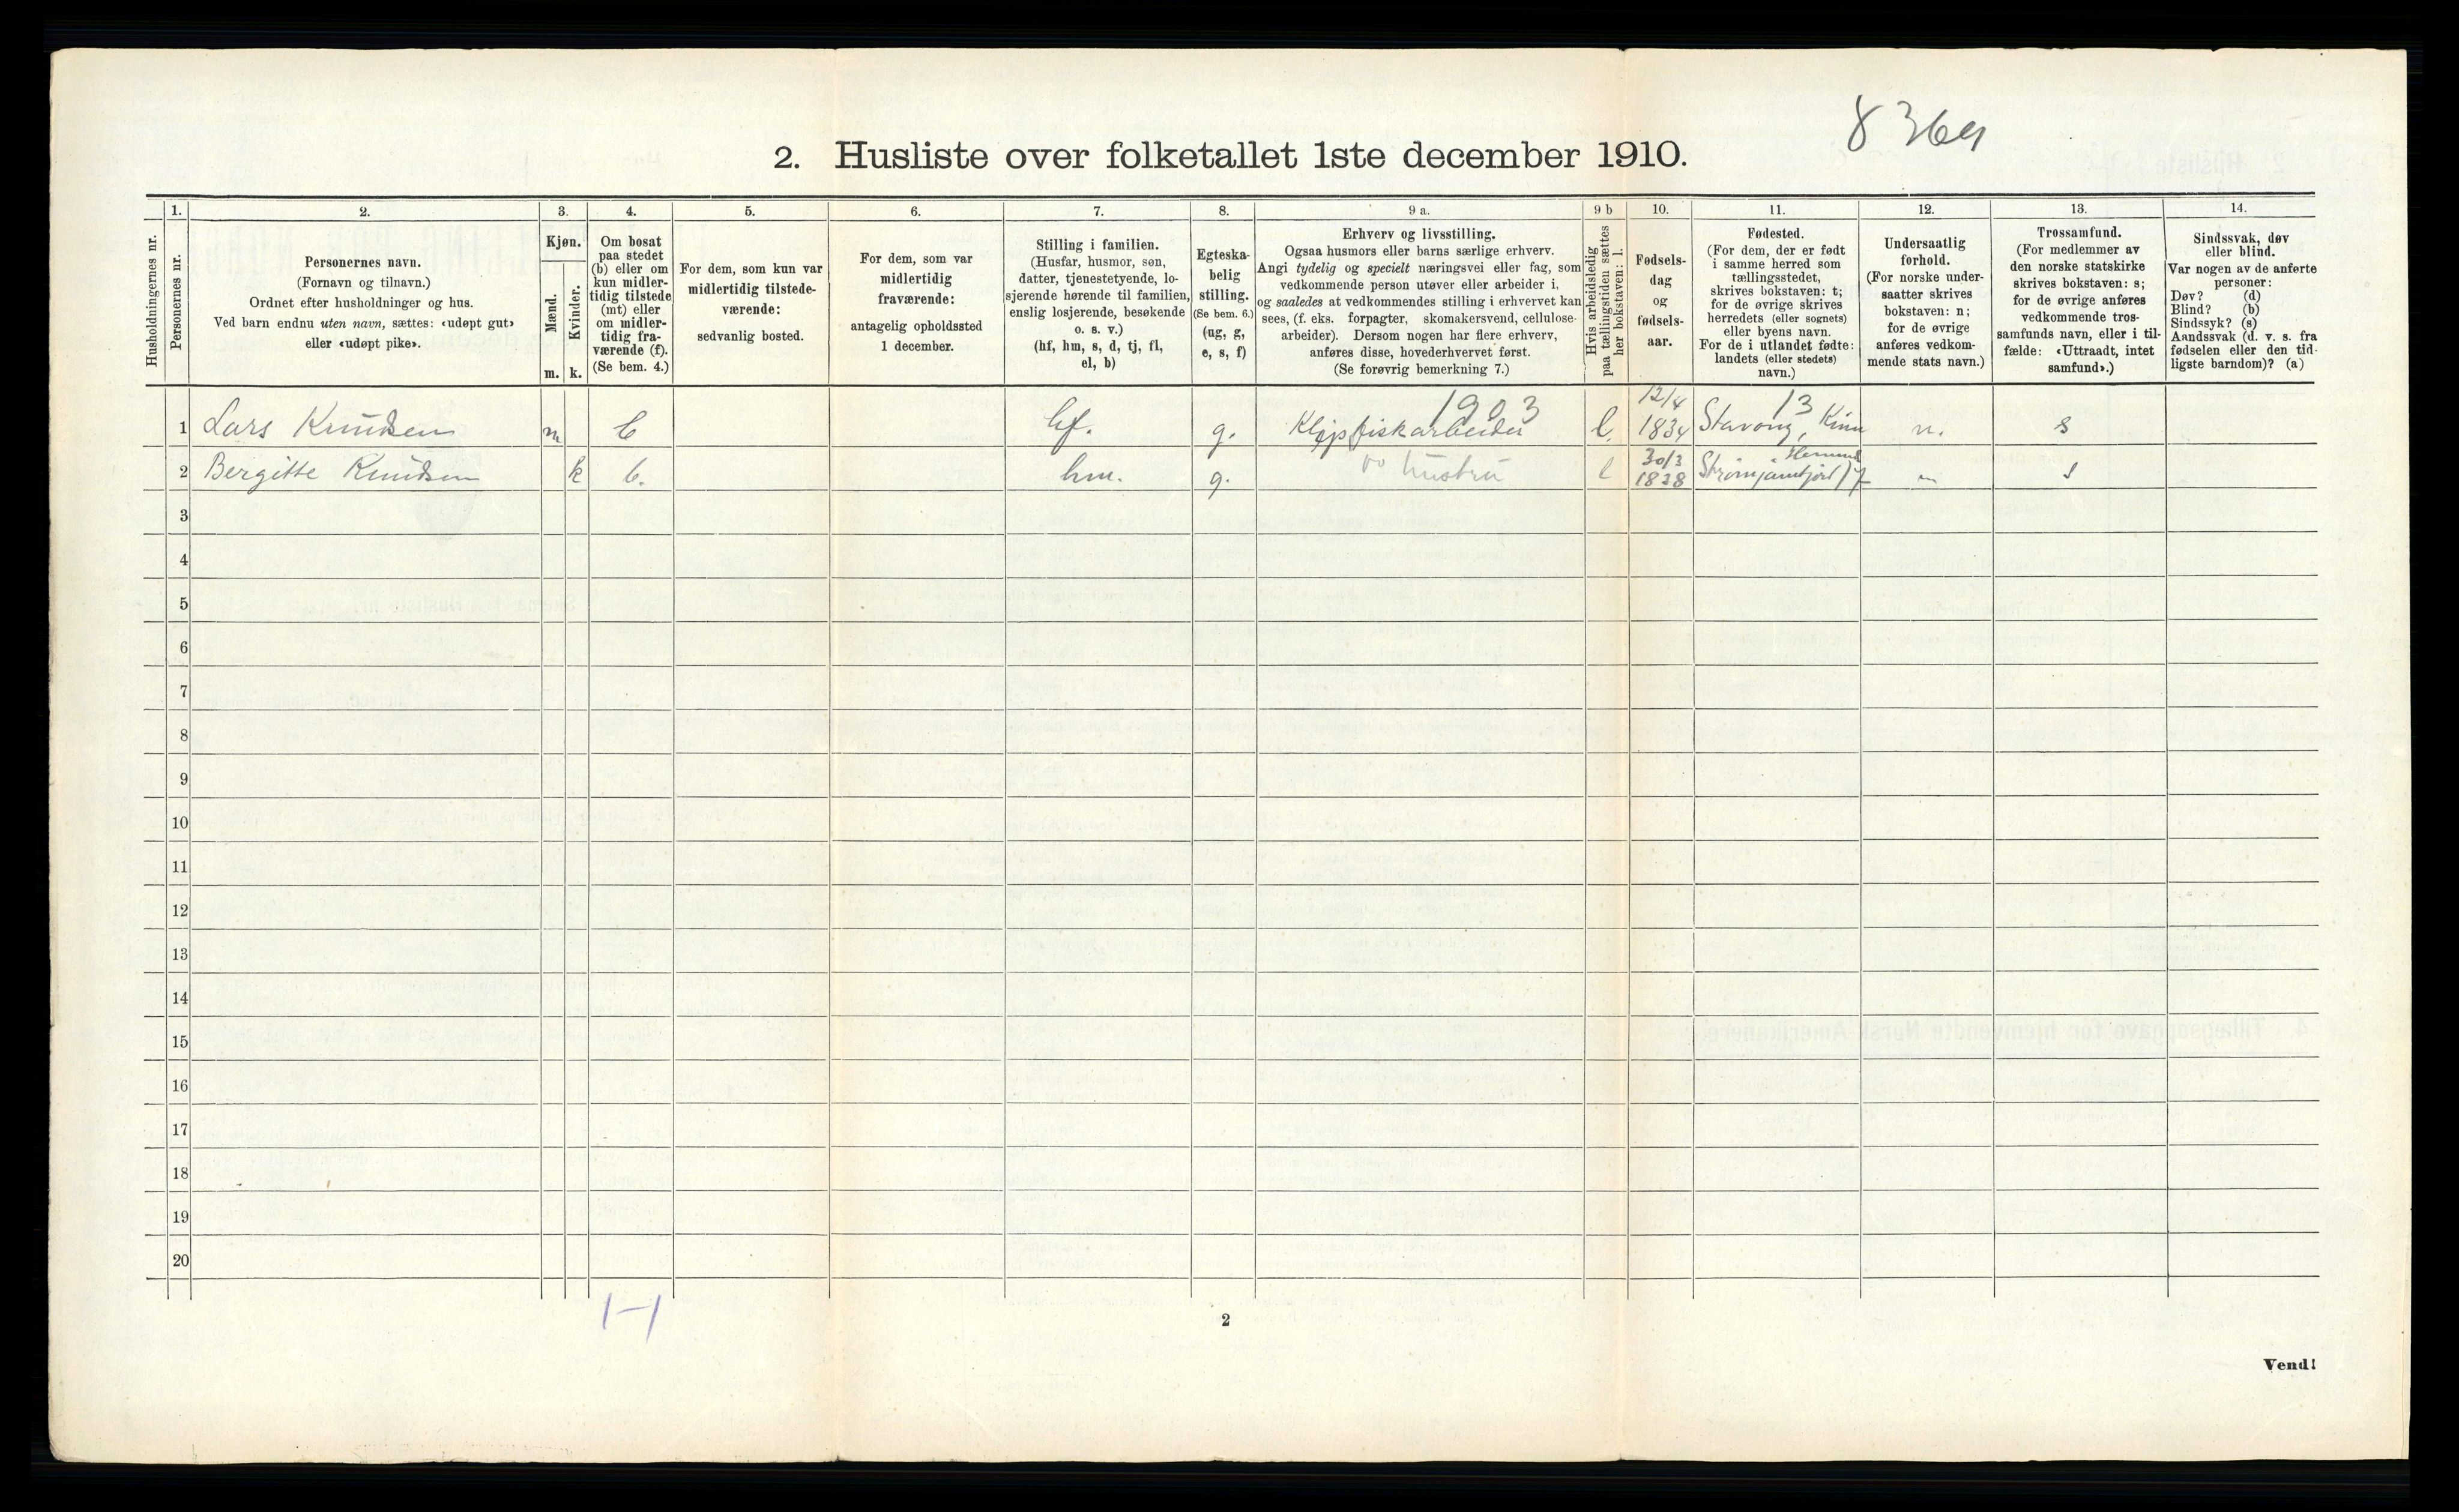 8369
2. Husliste over folketallet 1ste december 1910.
Husholdningernes nr.
1.
Personernes nr.
2.
Personernes navn.
(Fornavn og tilnavn.)
Ordnet efter husholdninger og hus.
Ved barn endnu uten navn, sættes: «udøpt gut»
eller «udøpt pike».
3.
Kjøn.
Mænd.
Kvinder.
m. k.
4.
Om bosat
paa stedet
(b) eller om
kun midler-
tidig tilstede
(mt) eller
om midler-
tidig fra-
værende (f).
(Se bem. 4.)
5.
For dem, som kun var
midlertidig tilstede-
værende:
sedvanlig bosted.
6.
For dem, som var
midlertidig
fraværende:
antagelig opholdssted
1 december.
7.
Stilling i familien.
(Husfar, husmor, søn,
datter, tjenestetyende, lo-
sjerende hørende til familien,
enslig losjerende, besøkende
o. s. v.)
(hf, hm, s, d, tj, fl,
el, b)
8.
Egteska-
belig
stilling.
(Se bem. 6.)
(ug, g,
e, s, f)
9 a.
Erhverv og livsstilling.
Ogsaa husmors eller barns særlige erhverv.
Angi tydelig og specielt næringsvei eller fag, som
vedkommende person utøver eller arbeider i,
og saaledes at vedkommendes stilling i erhvervet kan
sees, (f. eks. forpagter, skomakersvend, cellulose-
arbeider). Dersom nogen har flere erhverv,
anføres disse, hovederhvervet først.
(Se forøvrig bemerkning 7.)
9 b
Hvis arbeidsledig
paa tællingstiden sættes
her bokstaven: l.
10.
Fødsels-
dag
og
fødsels-
aar.
11.
Fødested.
(For dem, der er født
i samme herred som
tællingsstedet,
skrives bokstaven: t;
for de øvrige skrives
herredets (eller sognets)
eller byens navn.
For de i utlandet fødte:
landets (eller stedets)
navn.)
12.
Undersaatlig
forhold.
(For norske under-
saatter skrives
bokstaven: n;
for de øvrige
anføres vedkom-
mende stats navn.)
13.
Trossamfund.
(For medlemmer av
den norske statskirke
skrives bokstaven: s;
for de øvrige anføres
vedkommende tros-
samfunds navn, eller i til-
fælde: «Uttraadt, intet
samfund».)
14.
Sindssvak, døv
eller blind.
Var nogen av de anførte
personer:
Døv? (d)
Blind? (b)
Sindssyk? (s)
Aandssvak (d. v. s. fra
fødselen eller den tid-
ligste barndom)? (a)
1903 12/4 13
1 Lars Knudsen m b hf. g. Klipfiskarbeider l. 1834 Stavang, Kinn n. s
2 Bergitte Knudsen k b. hm. g. hustru l 30/3 1828 s
3
4
5
6
7
8
9
10
11
12
13
14
15
16
17
18
19
20
1-1
2
Vend!